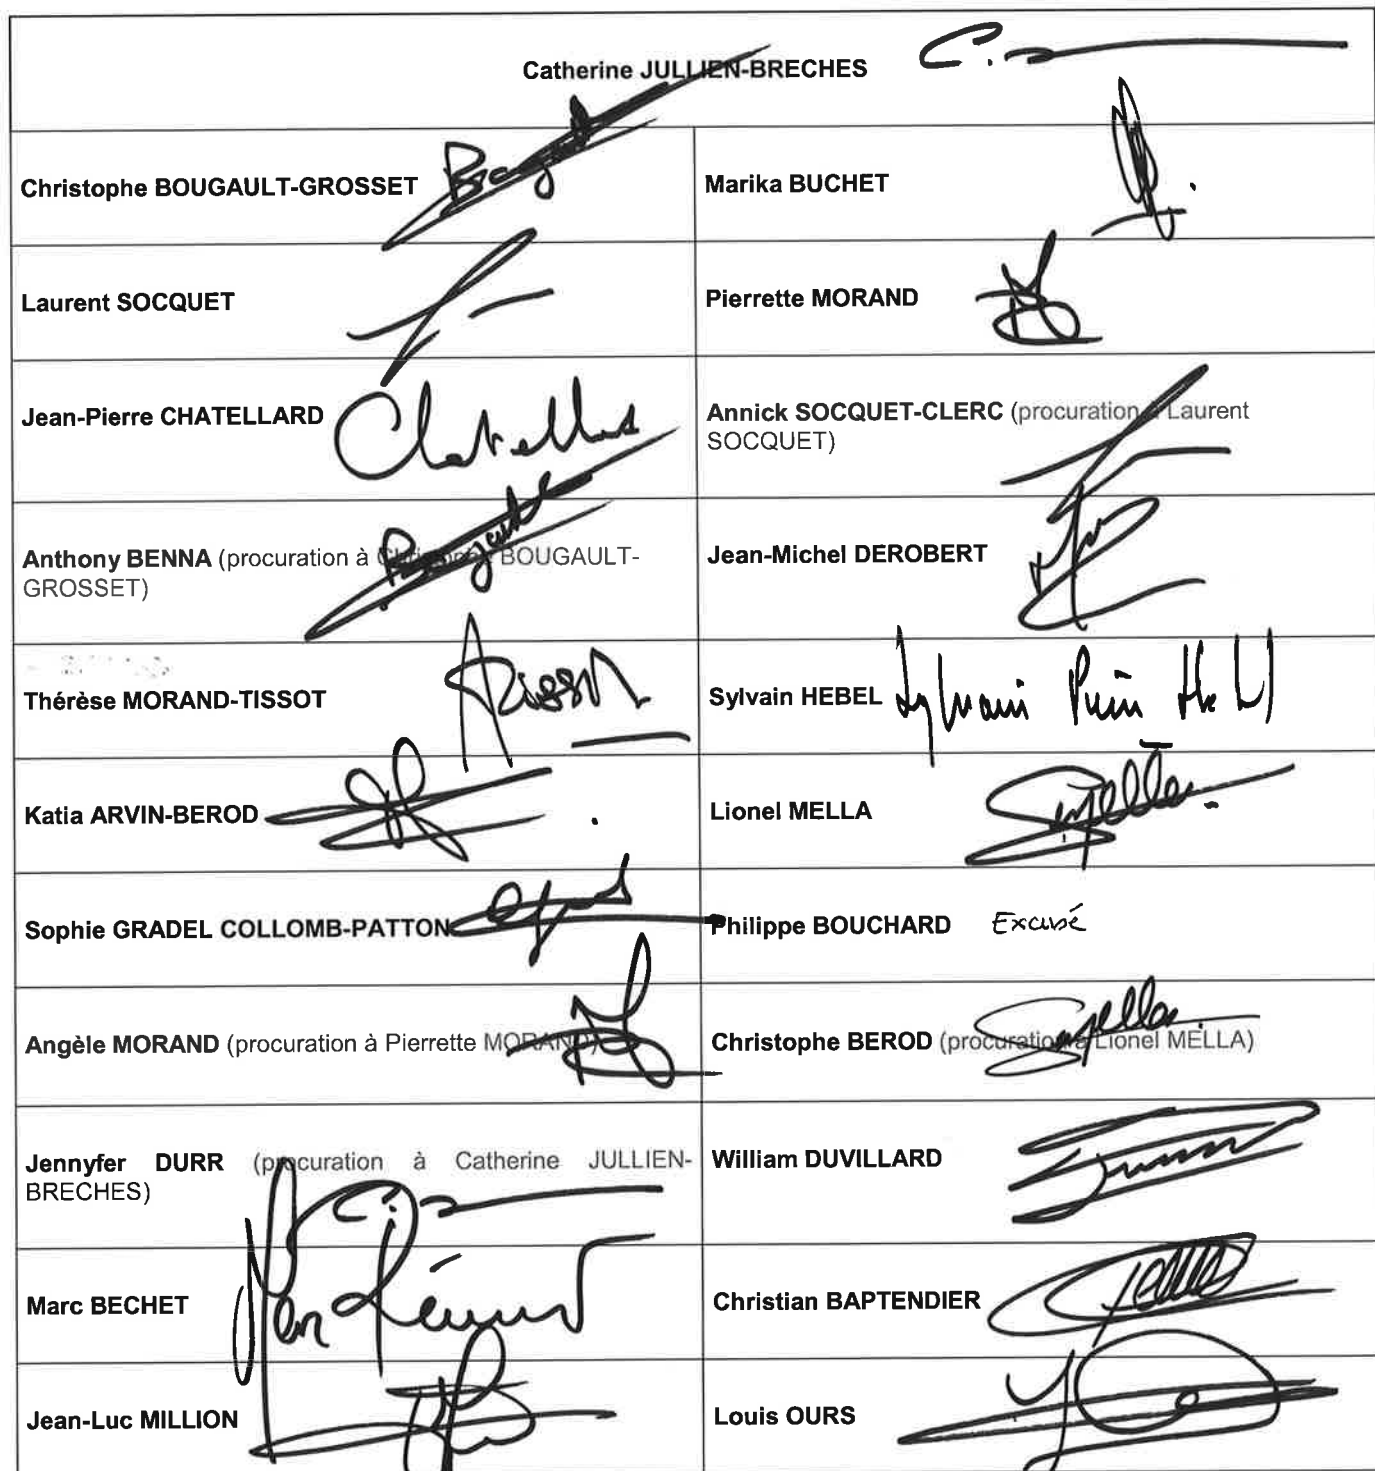 Catherine JULLIEN-BRECHES
Christophe BOUGAULT-GROSSET
Marika BUCHET
Laurent SOCQUET
Pierrette MORAND
Jean-Pierre CHATELLARD
Annick SOCQUET-CLERC (procuration à Laurent
SOCQUET)
Anthony BENNA (procuration à Christophe BOUGAULT-
GROSSET)
Jean-Michel DEROBERT
Thérèse MORAND-TISSOT
Sylvain HEBEL
Katia ARVIN-BEROD
Lionel MELLA
Sophie GRADEL COLLOMB-PATTON
Philippe BOUCHARD Excusé
Angèle MORAND (procuration à Pierrette MORAND)
Christophe BEROD (procuration à Lionel MELLA)
Jennyfer DURR (procuration à Catherine JULLIEN-
BRECHES)
William DUVILLARD
Marc BECHET
Christian BAPTENDIER
Jean-Luc MILLION
Louis OURS